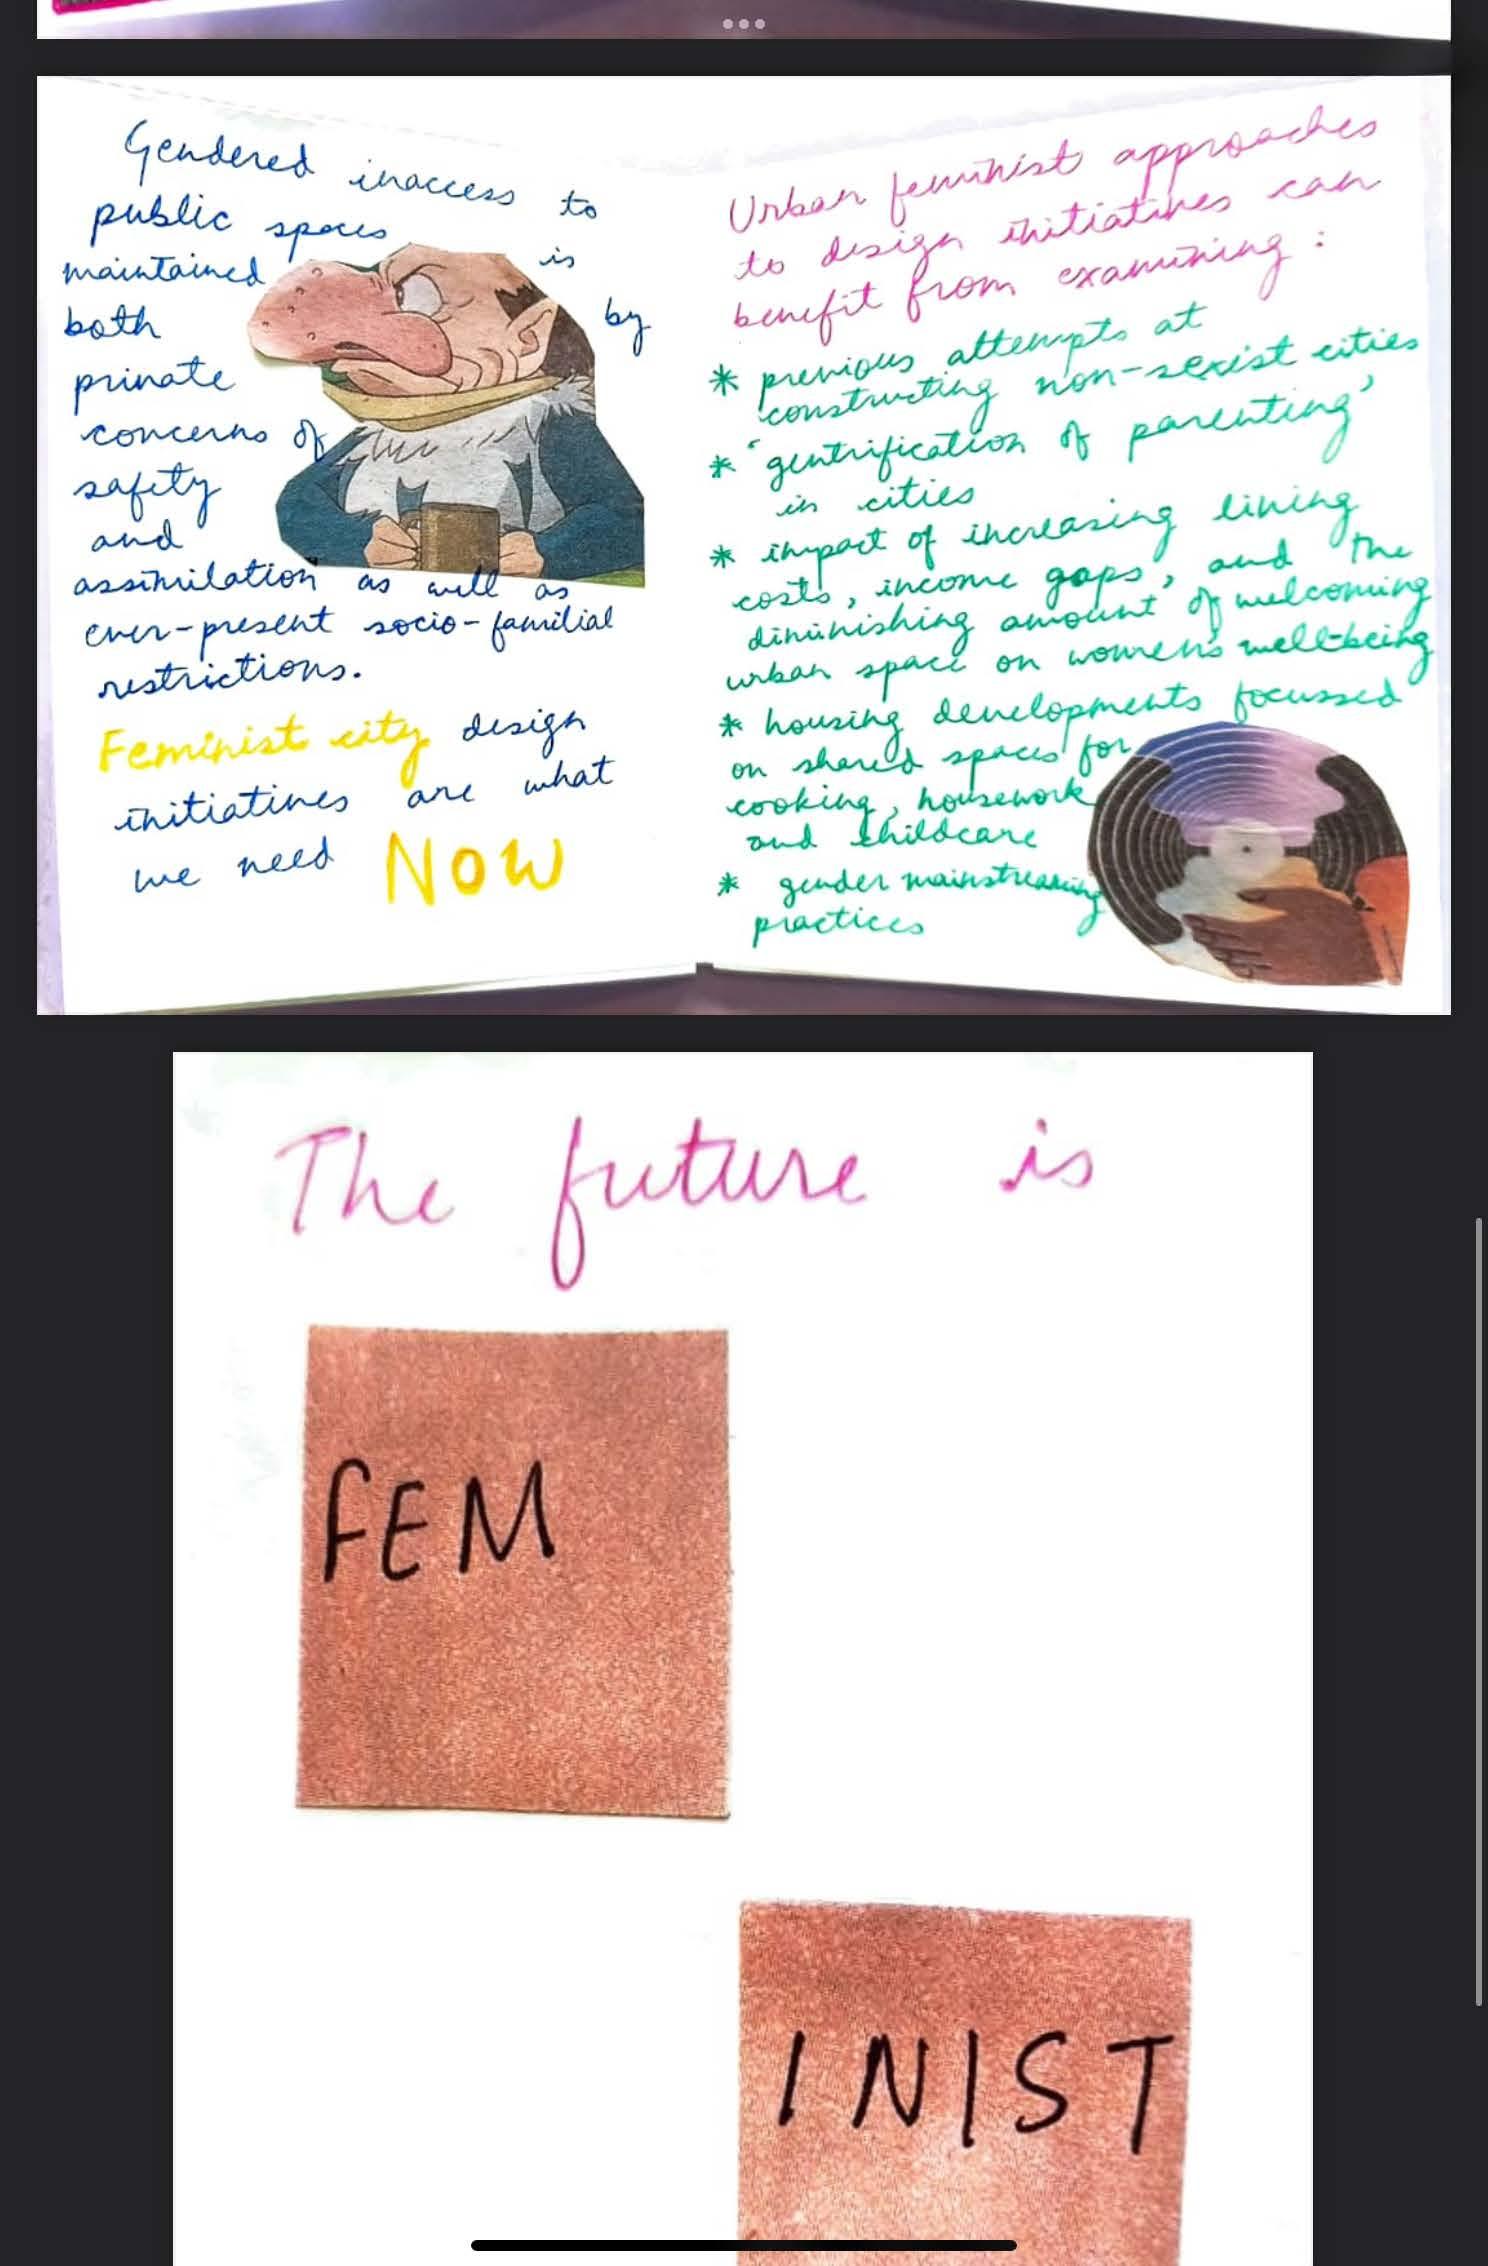 Gendered inaccess to
public spaces
maintained is
both by
private
concerns of
safety
and
assimilation as well as
ever-present socio-familial
restrictions.
Feminist city design
initiatives are what
we need NOW
Urban feminist approaches
to design initiatives can
benefit from examining :
* previous attempts at
constructing non-sexist cities
* 'gentrification of parenting'
in cities
* impact of increasing living
costs, income gaps, and the
diminishing amount of welcoming
urban space on women's well-being
* housing developments focussed
on shared spaces for
cooking, housework
and childcare
* gender mainstreaming
practices
The future is
FEM
INIST